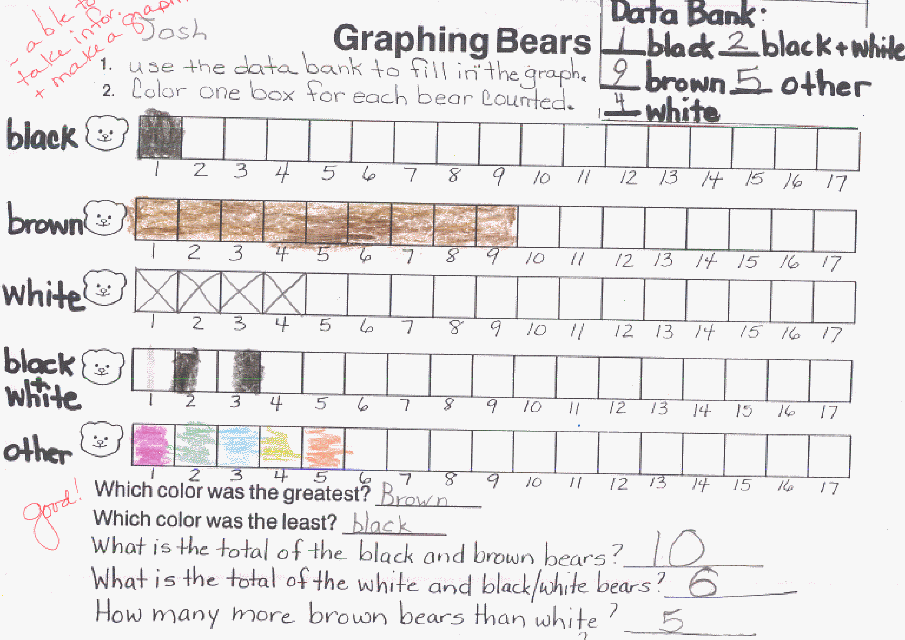 ~ able to
take infor.
+ make a graph.
Josh
Graphing Bears
Data Bank:
1 black 2 black + white
9 brown 5 other
4 white
1. use the data bank to fill in the graph.
2. Color one box for each bear Counted.
black
1 2 3 4 5 6 7 8 9 10 11 12 13 14 15 16 17
brown
1 2 3 4 5 6 7 8 9 10 11 12 13 14 15 16 17
white
1 2 3 4 5 6 7 8 9 10 11 12 13 14 15 16 17
black
+
white
1 2 3 4 5 6 7 8 9 10 11 12 13 14 15 16 17
other
1 2 3 4 5 6 7 8 9 10 11 12 13 14 15 16 17
good!
Which color was the greatest? Brown
Which color was the least? black
What is the total of the black and brown bears? 10
What is the total of the white and black/white bears? 6
How many more brown bears than white? 5